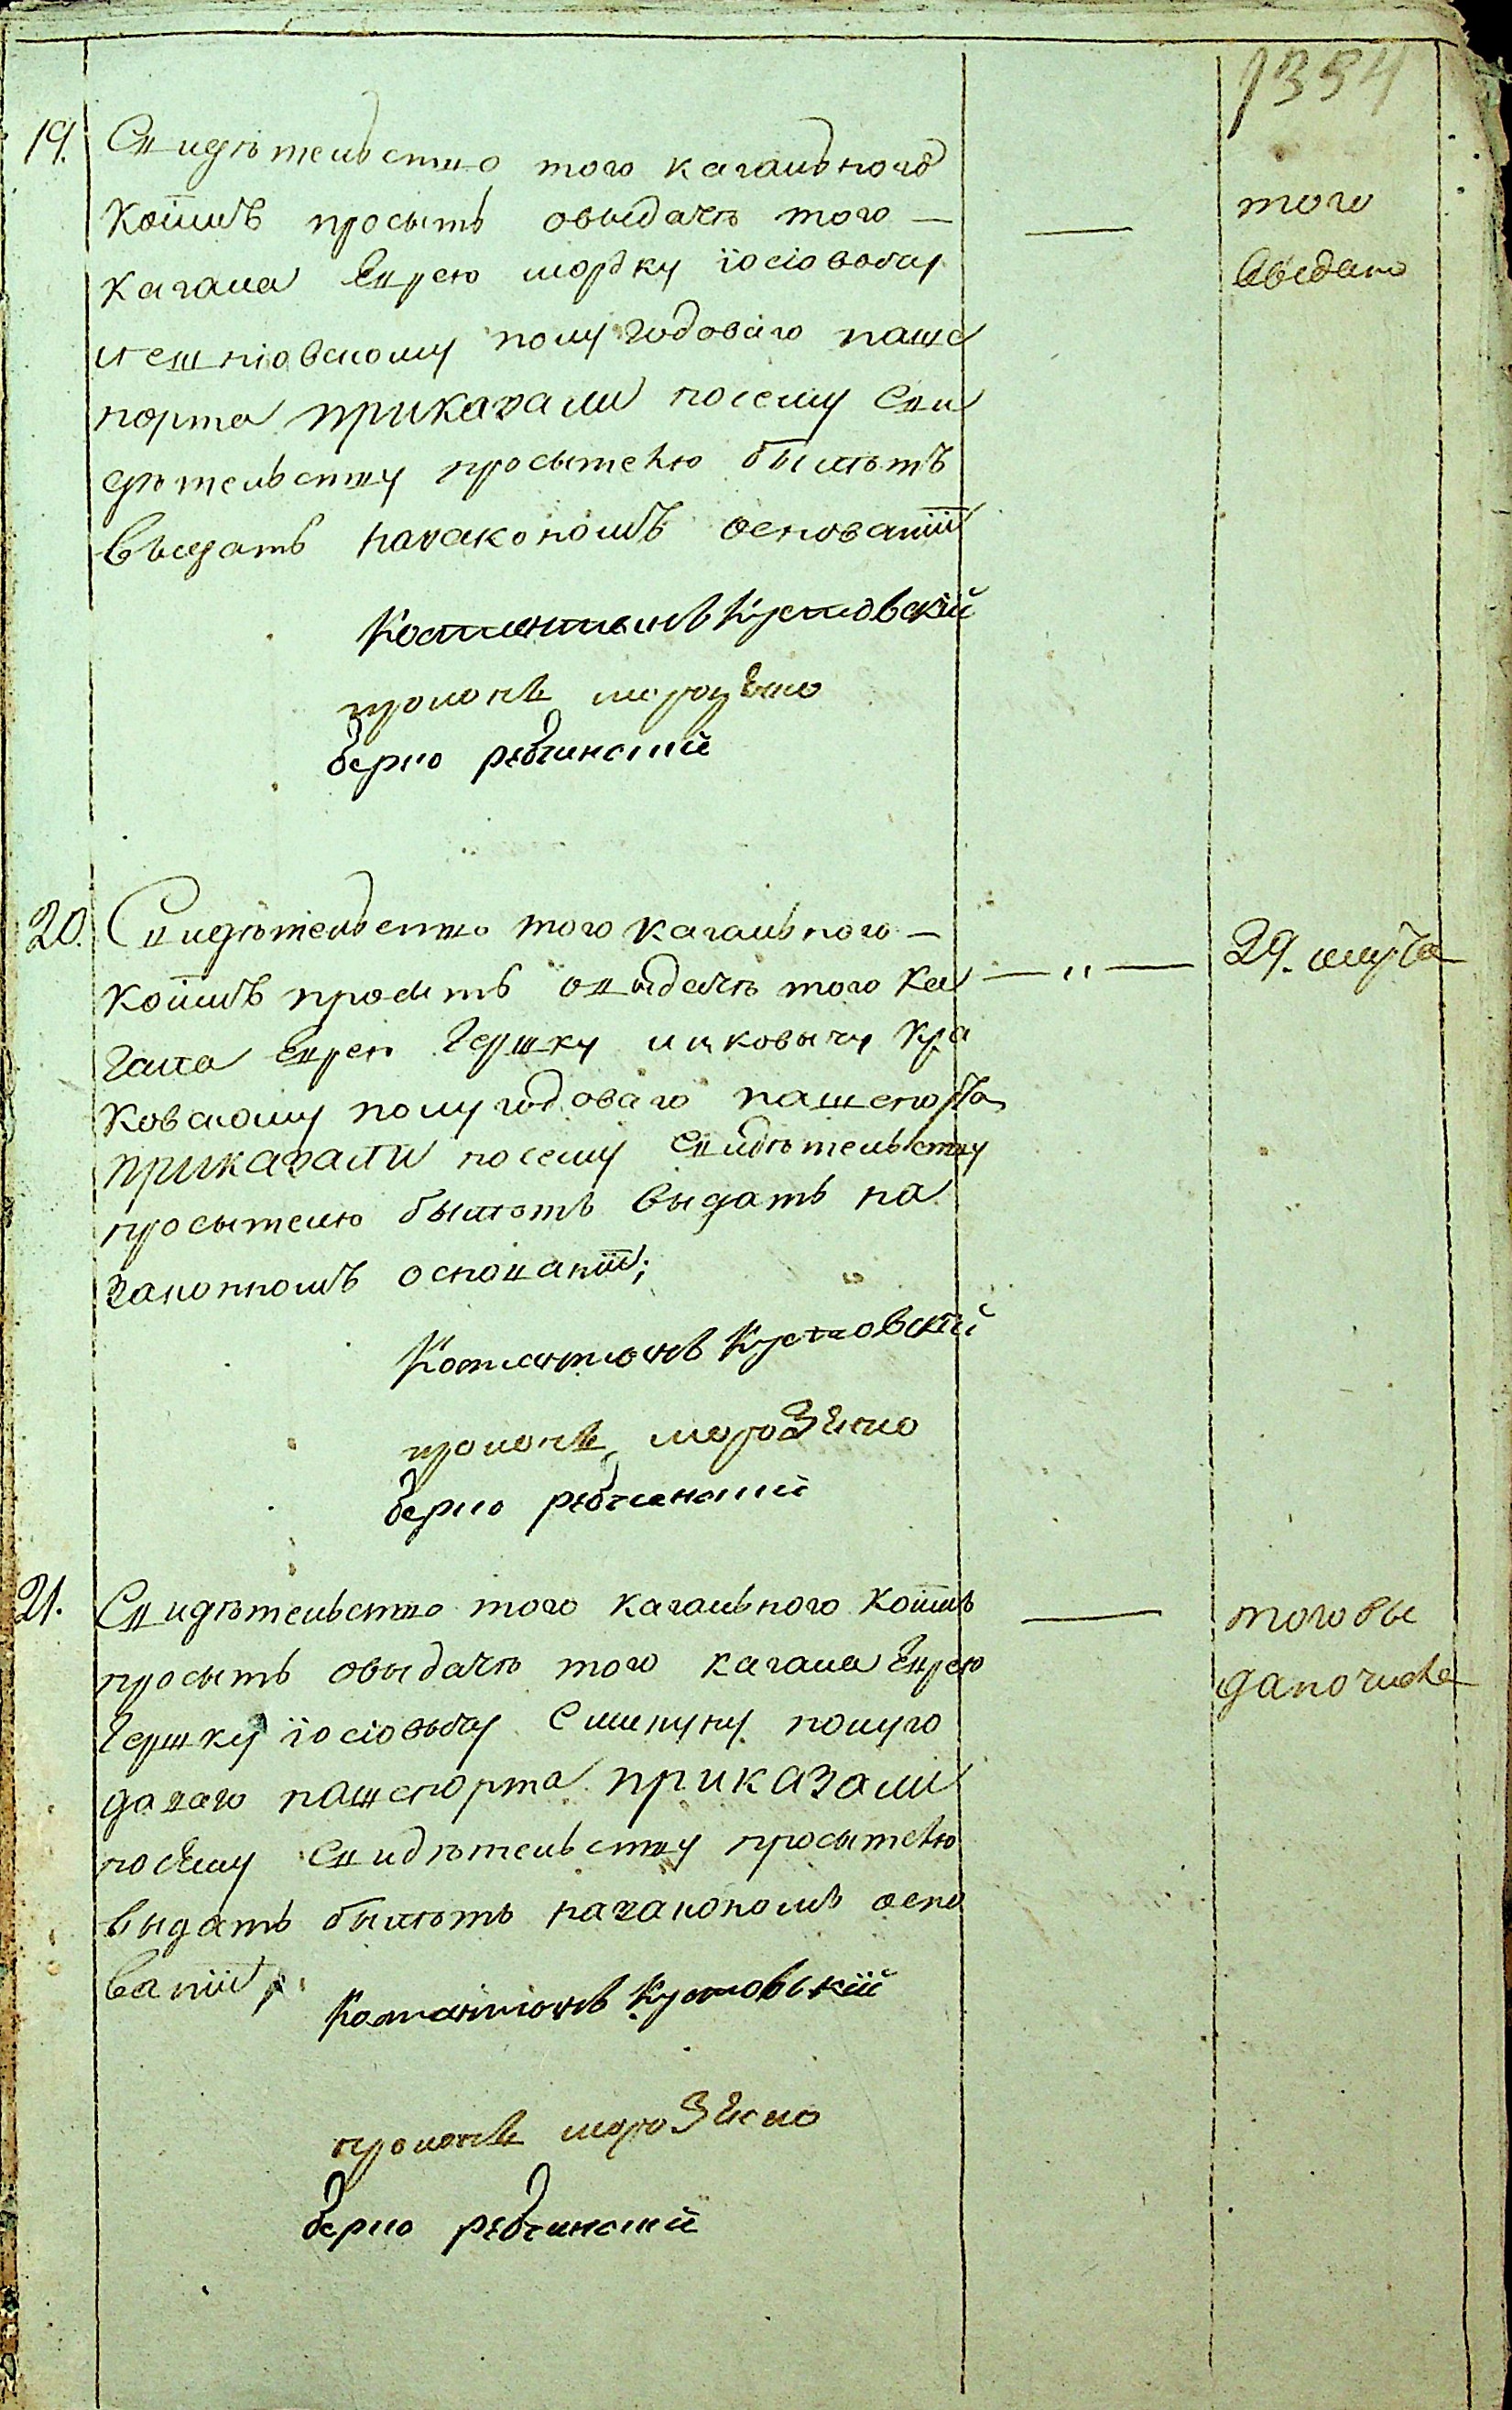 1354
19. Свидѣтельство того кагального
коимъ просыть овыдачѣ того —
кагала Еврею мордку іосіовочу
полугодоваго пашс
порта приказали посему Сви
дѣтельству просытелю былѣтъ
выдатьназакономъ основаніи
Костантинъ Кустовскій
проконъ морозенко
берко рабчинский
того
выдано
20. Свидѣтельство того кагального —
коимъ просить овыдачѣ того ка
гала Еврею Гершку ицковычу Кра
ковскому полугодоваго пашспорта
приказали посему Свидѣтельству
просытелю былѣтъ выдать на
законномъ основаніи;
Костантинъ Кустовский
проконъ морозенко
берко рабчинский
— " — 29. марта
21. Свидѣтельство того кагального коимъ
просыть овыдачѣ того кагала Еврею
Гершку іосіовычу полуго
доваго пашспорта приказали
посему Свидѣтельству просытелю
выдать былѣтъ назакономъ осно
ваніи,
Костантинъ Кустовскій
проконъ морозенко
берко рабчинский
того вы
дано